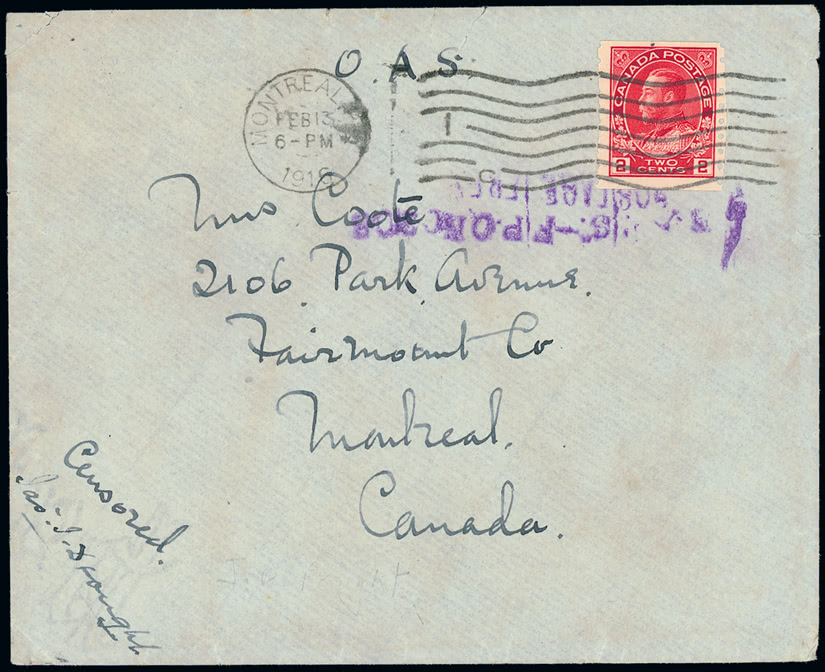 O.A.S.
MONTREAL
FEB 13
6-PM
1918
CANADA POSTAGE
2 TWO CENTS 2
Coote
2106 Park Avenue.
Fairmount Co
Montreal.
Canada.
Censored.